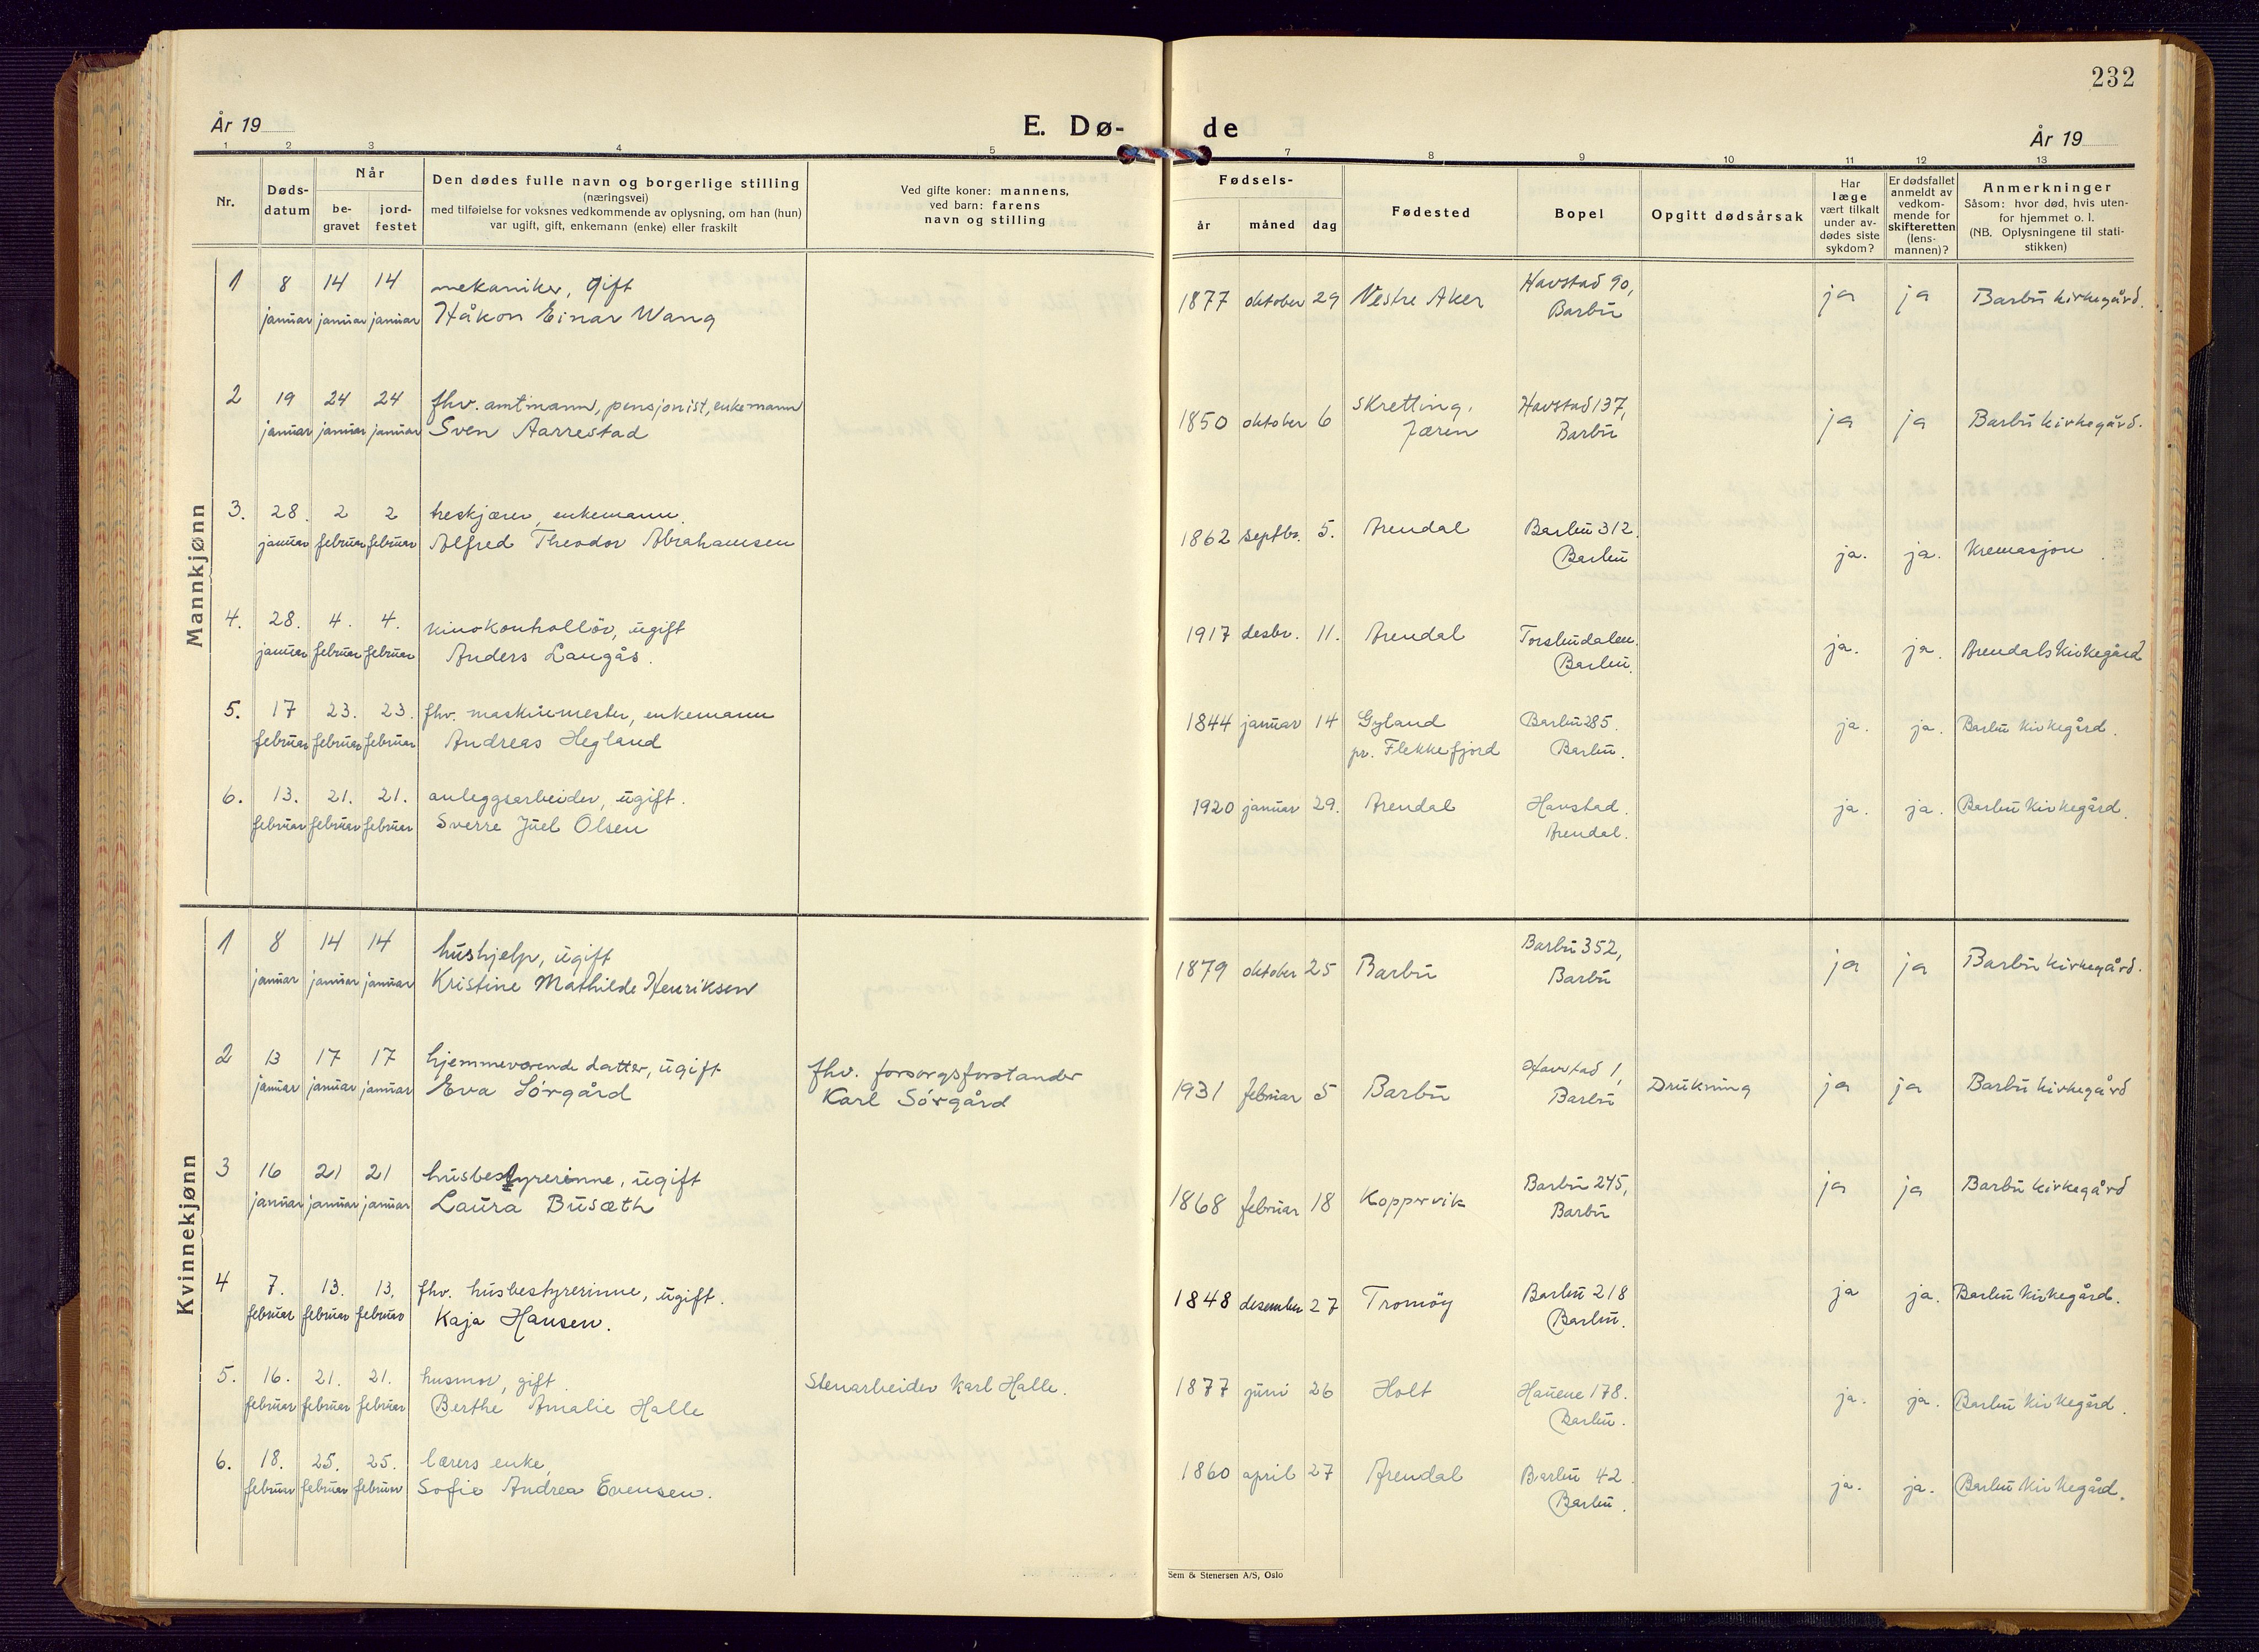 232
År 19
E. Dø-
de
År 19
1 2 3 4 5 7 8 9 10 11 12 13
Nr.
Døds-
datum
Når
be-
gravet
jord-
festet
Den dødes fulle navn og borgerlige stilling
(næringsvei)
med tilføielse for voksnes vedkommende av oplysning, om han (hun)
var ugift, gift, enkemann (enke) eller fraskilt
Ved gifte koner: mannens,
ved barn: farens
navn og stilling
Fødsels-
år
måned
dag
Fødested
Bopel
Opgitt dødsårsak
Har
læge
vært tilkalt
under av-
dødes siste
sykdom?
Er dødsfallet
anmeldt av
vedkom-
mende for
skifteretten
(lens-
mannen)?
Anmerkninger
Såsom: hvor død, hvis uten-
for hjemmet o. l.
(NB. Oplysningene til stati-
stikken)
Mannkjønn
1 8 14 14 mekaniker, gift
januar januar januar Håkon Einar Wang
1877 oktober 29 Vestre Aker Havstad 90, ja ja Barbu kirkegård.
Barbu
2 19 24 24 fhv. amtmann, pensjonist, enkemann
januar januar januar Sven Aarrestad
1850 oktober 6 Skretting, Havstad 137, ja ja Barbu kirkegård.
Jæren Barbu
3. 28. 2 2 treskjærer, enkemann.
januar februar februar Alfred Theodor Abrahamsen
1862 septbr. 5. Arendal Barbu 312. ja. ja. Kremasjon.
Barbu
4. 28. 4. 4. kinokontrollör, ugift
januar februar februar Anders Langås.
1917 desbr. 11. Arendal Torsbudalen. ja. ja. Arendals kirkegård
Barbu.
5. 17 23. 23. fhv. maskinmester, enkemann
februar februar februar Andreas Hegland
1844 januar 14 Gyland Barbu 285. ja. ja. Barbu kirkegård.
pr. Flekkefjord Barbu.
6. 13. 21. 21. anleggsarbeider, ugift.
februar februar februar Sverre Juel Olsen
1920 januar 29. Arendal Havstad. ja. ja. Barbu kirkegård.
Arendal.
Kvinnekjønn
1 8 14 14 hushjelp, ugift
januar januar januar Kristine Mathilde Henriksen
1879 oktober 25 Barbu Barbu 352, ja ja Barbu kirkegård.
Barbu
2 13 17 17 hjemmeværende datter, ugift fhv. forsorgsforstander
januar januar januar Eva Sörgård Karl Sörgård
1931 februar 5 Barbu Havstad 1, Drukning ja ja Barbu kirkegård
Barbu
3 16 21 21 husbestyrerinne, ugift
januar januar januar Laura Busæth
1868 februar 18 Koppervik Barbu 245, ja ja Barbu kirkegård
Barbu
4 7. 13. 13. fhv. husbestyrerinne, ugift.
februar februar februar Kaja Hansen.
1848 desember 27 Tromöy Barbu 218 ja ja. Barbu kirkegård.
Barbu.
5. 16. 21. 21. husmor, gift. Stenarbeider Karl Halle.
februar februar februar Berthe Amalie Halle
1877 juni 26 Holt Hauene 178. ja. ja. Barbu kirkegård.
Barbu.
6. 18. 25. 25. lærers enke,
februar februar februar Sofie Andrea Evensen.
1860 april 27 Arendal Barbu 42. ja. ja. Barbu kirkegård.
Barbu.
Sem & Stenersen A/S, Oslo